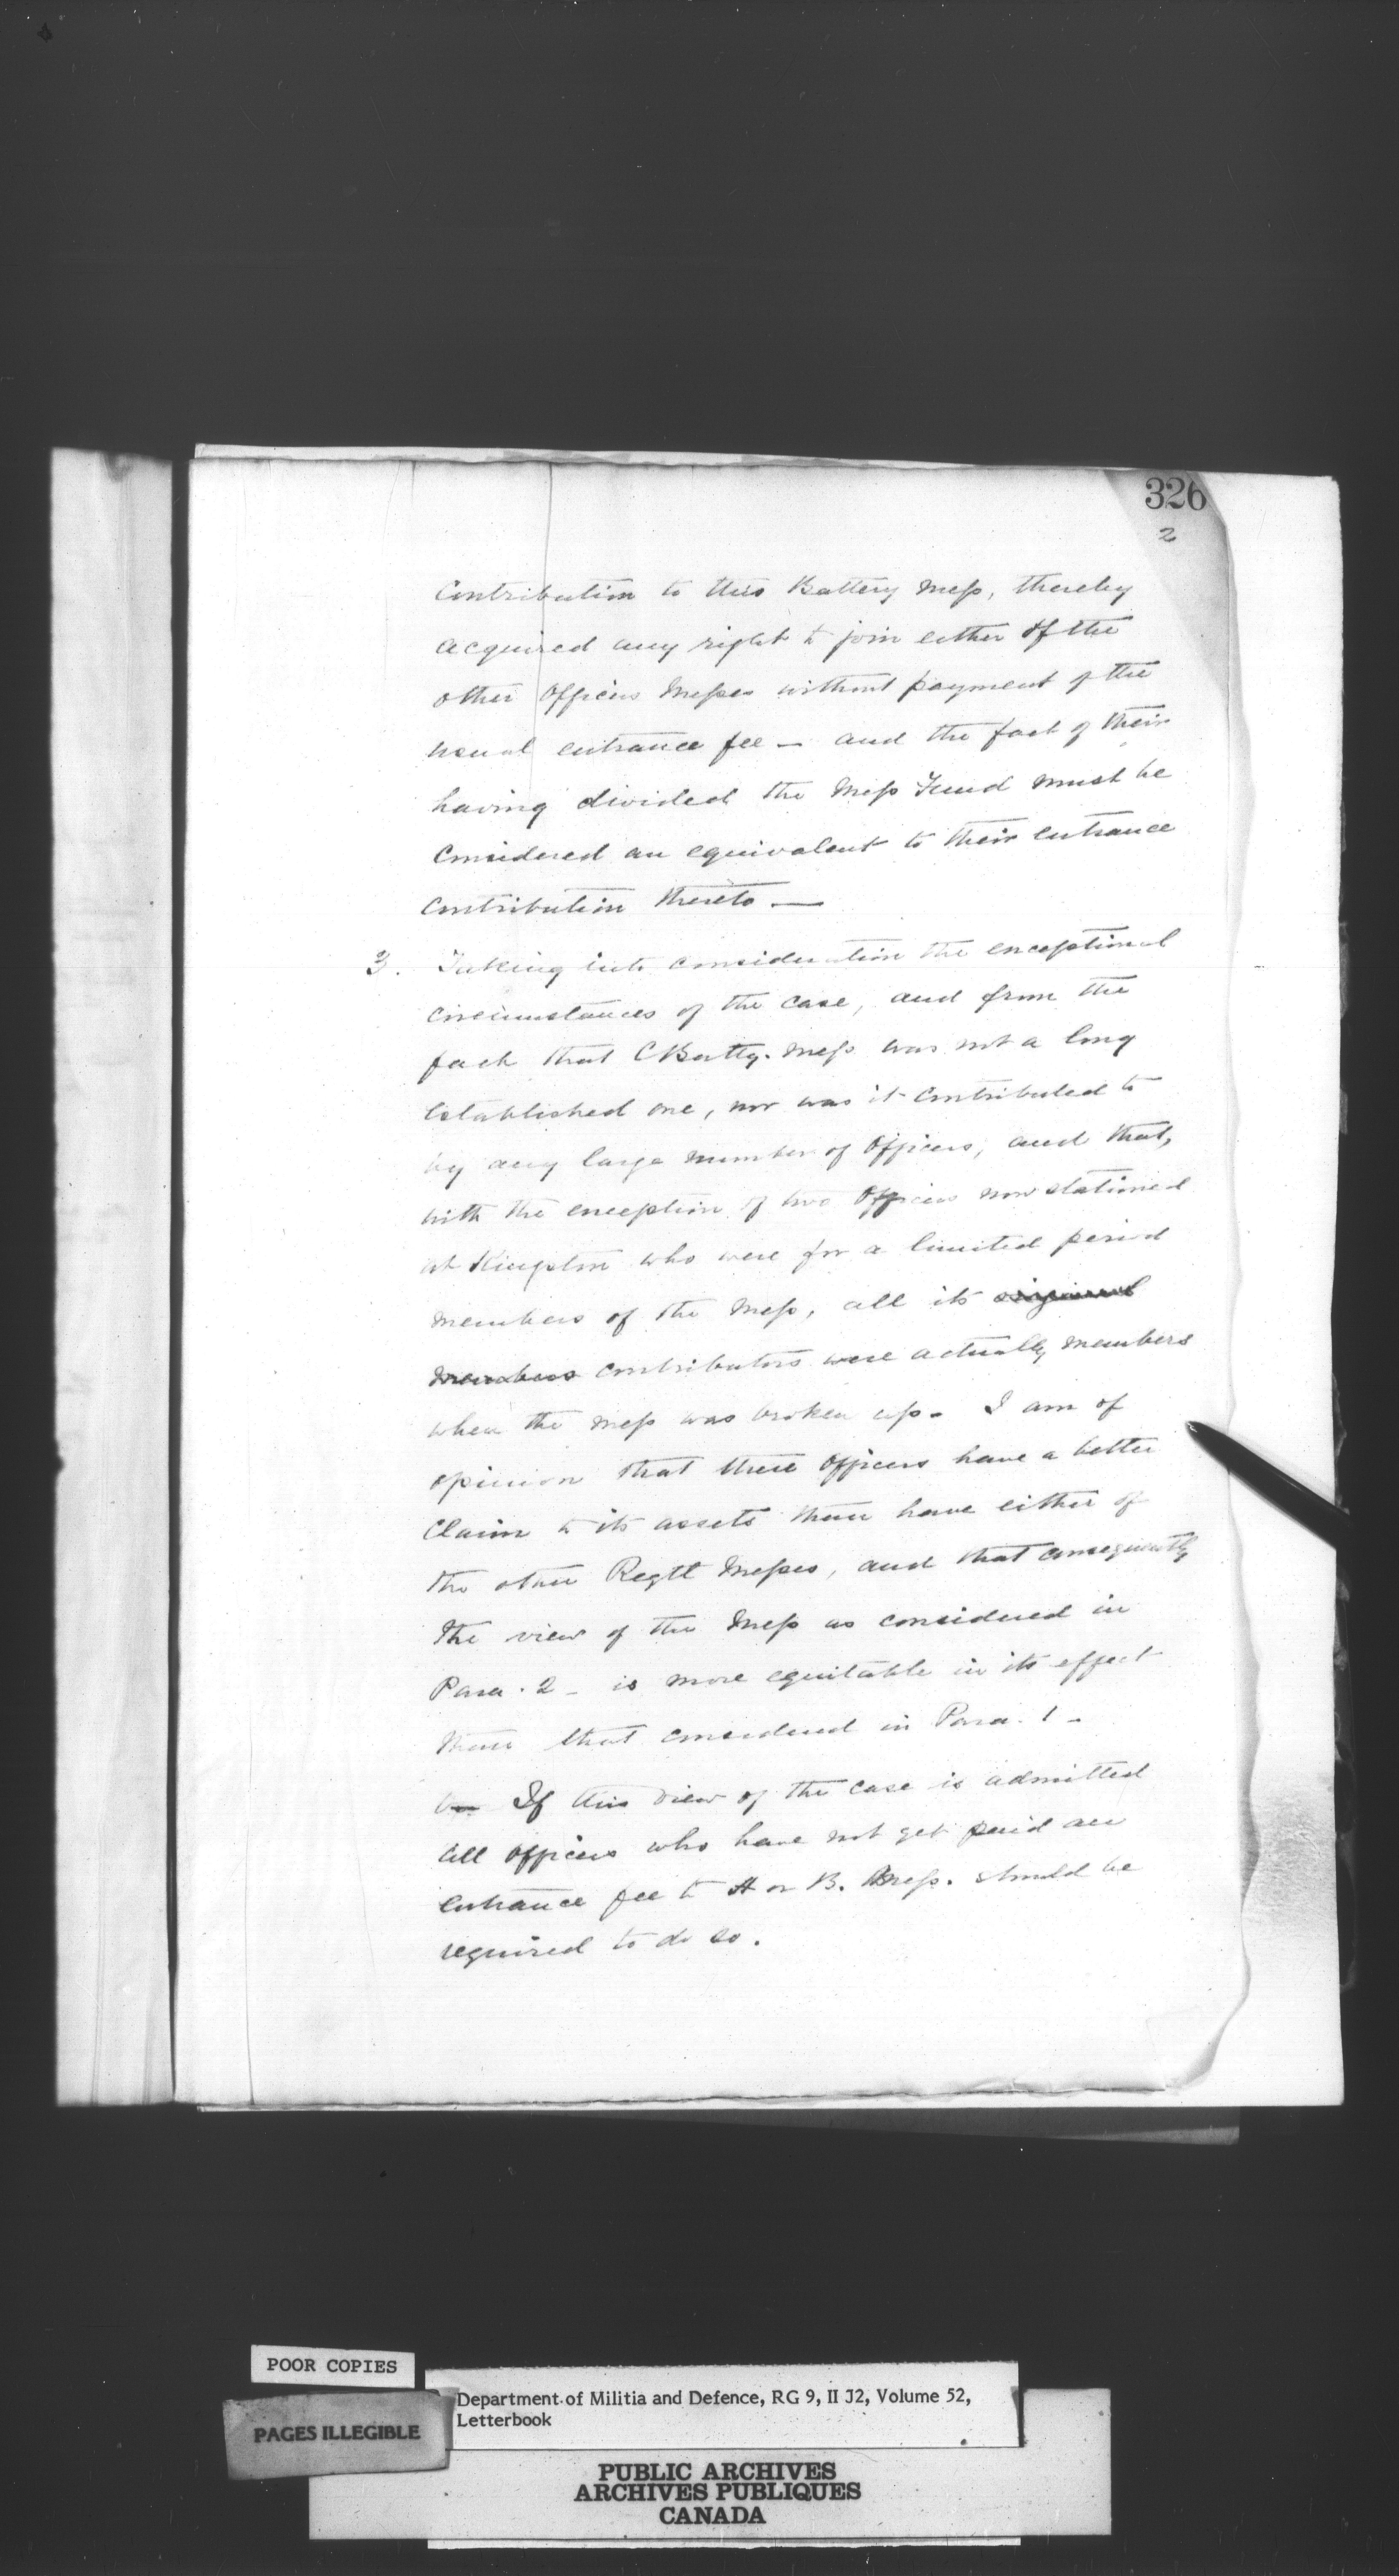 326
2
Contribution to this Battery Mess, thereby
acquired any right to join either of the
other Officers Messes without payment of the
usual entrance fee — and the fact of their
having divided the Mess Fund must be
Considered an equivalent to their entrance
Contribution thereto —
3. Taking into consideration the exceptional
Circumstances of the Case, and from the
fact that C Batty. Mess was not a long
established one, nor was it Contributed to
by any large number of Officers, and that,
with the exception of two Officers now stationed
at Kingston who were for a limited period
Members of the Mess, all its original
Members Contributors were actually members
when the Mess was broken up - I am of
opinion that these Officers have a better
Claim to its assets than have either of
the other Regtl Messes, and that consequently
the view of the Mess as considered in
Para. 2 - is more equitable in its effect
than that considered in Para. 1 -
If this view of the case is admitted
all Officers who have not yet paid an
entrance fee to A or B. Mess. should be
required to do so.
POOR COPIES
PAGES ILLEGIBLE
Department of Militia and Defence, RG 9, II J2, Volume 52,
Letterbook
PUBLIC ARCHIVES
ARCHIVES PUBLIQUES
CANADA